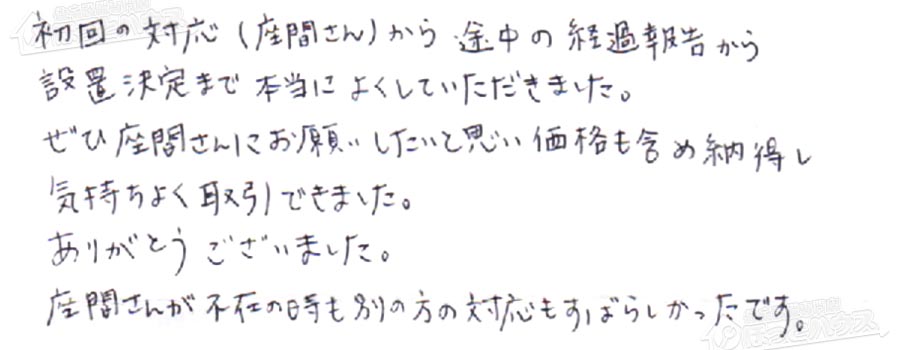 初回の対応(座間さん)から 途中の経過報告から
設置決定まで本当によくしていただきました。
ぜひ座間さんにお願いしたいと思い価格も含め納得し
気持ちよく取引できました。
ありがとうございました。
座間さんが不在の時も別の方の対応もすばらしかったです。